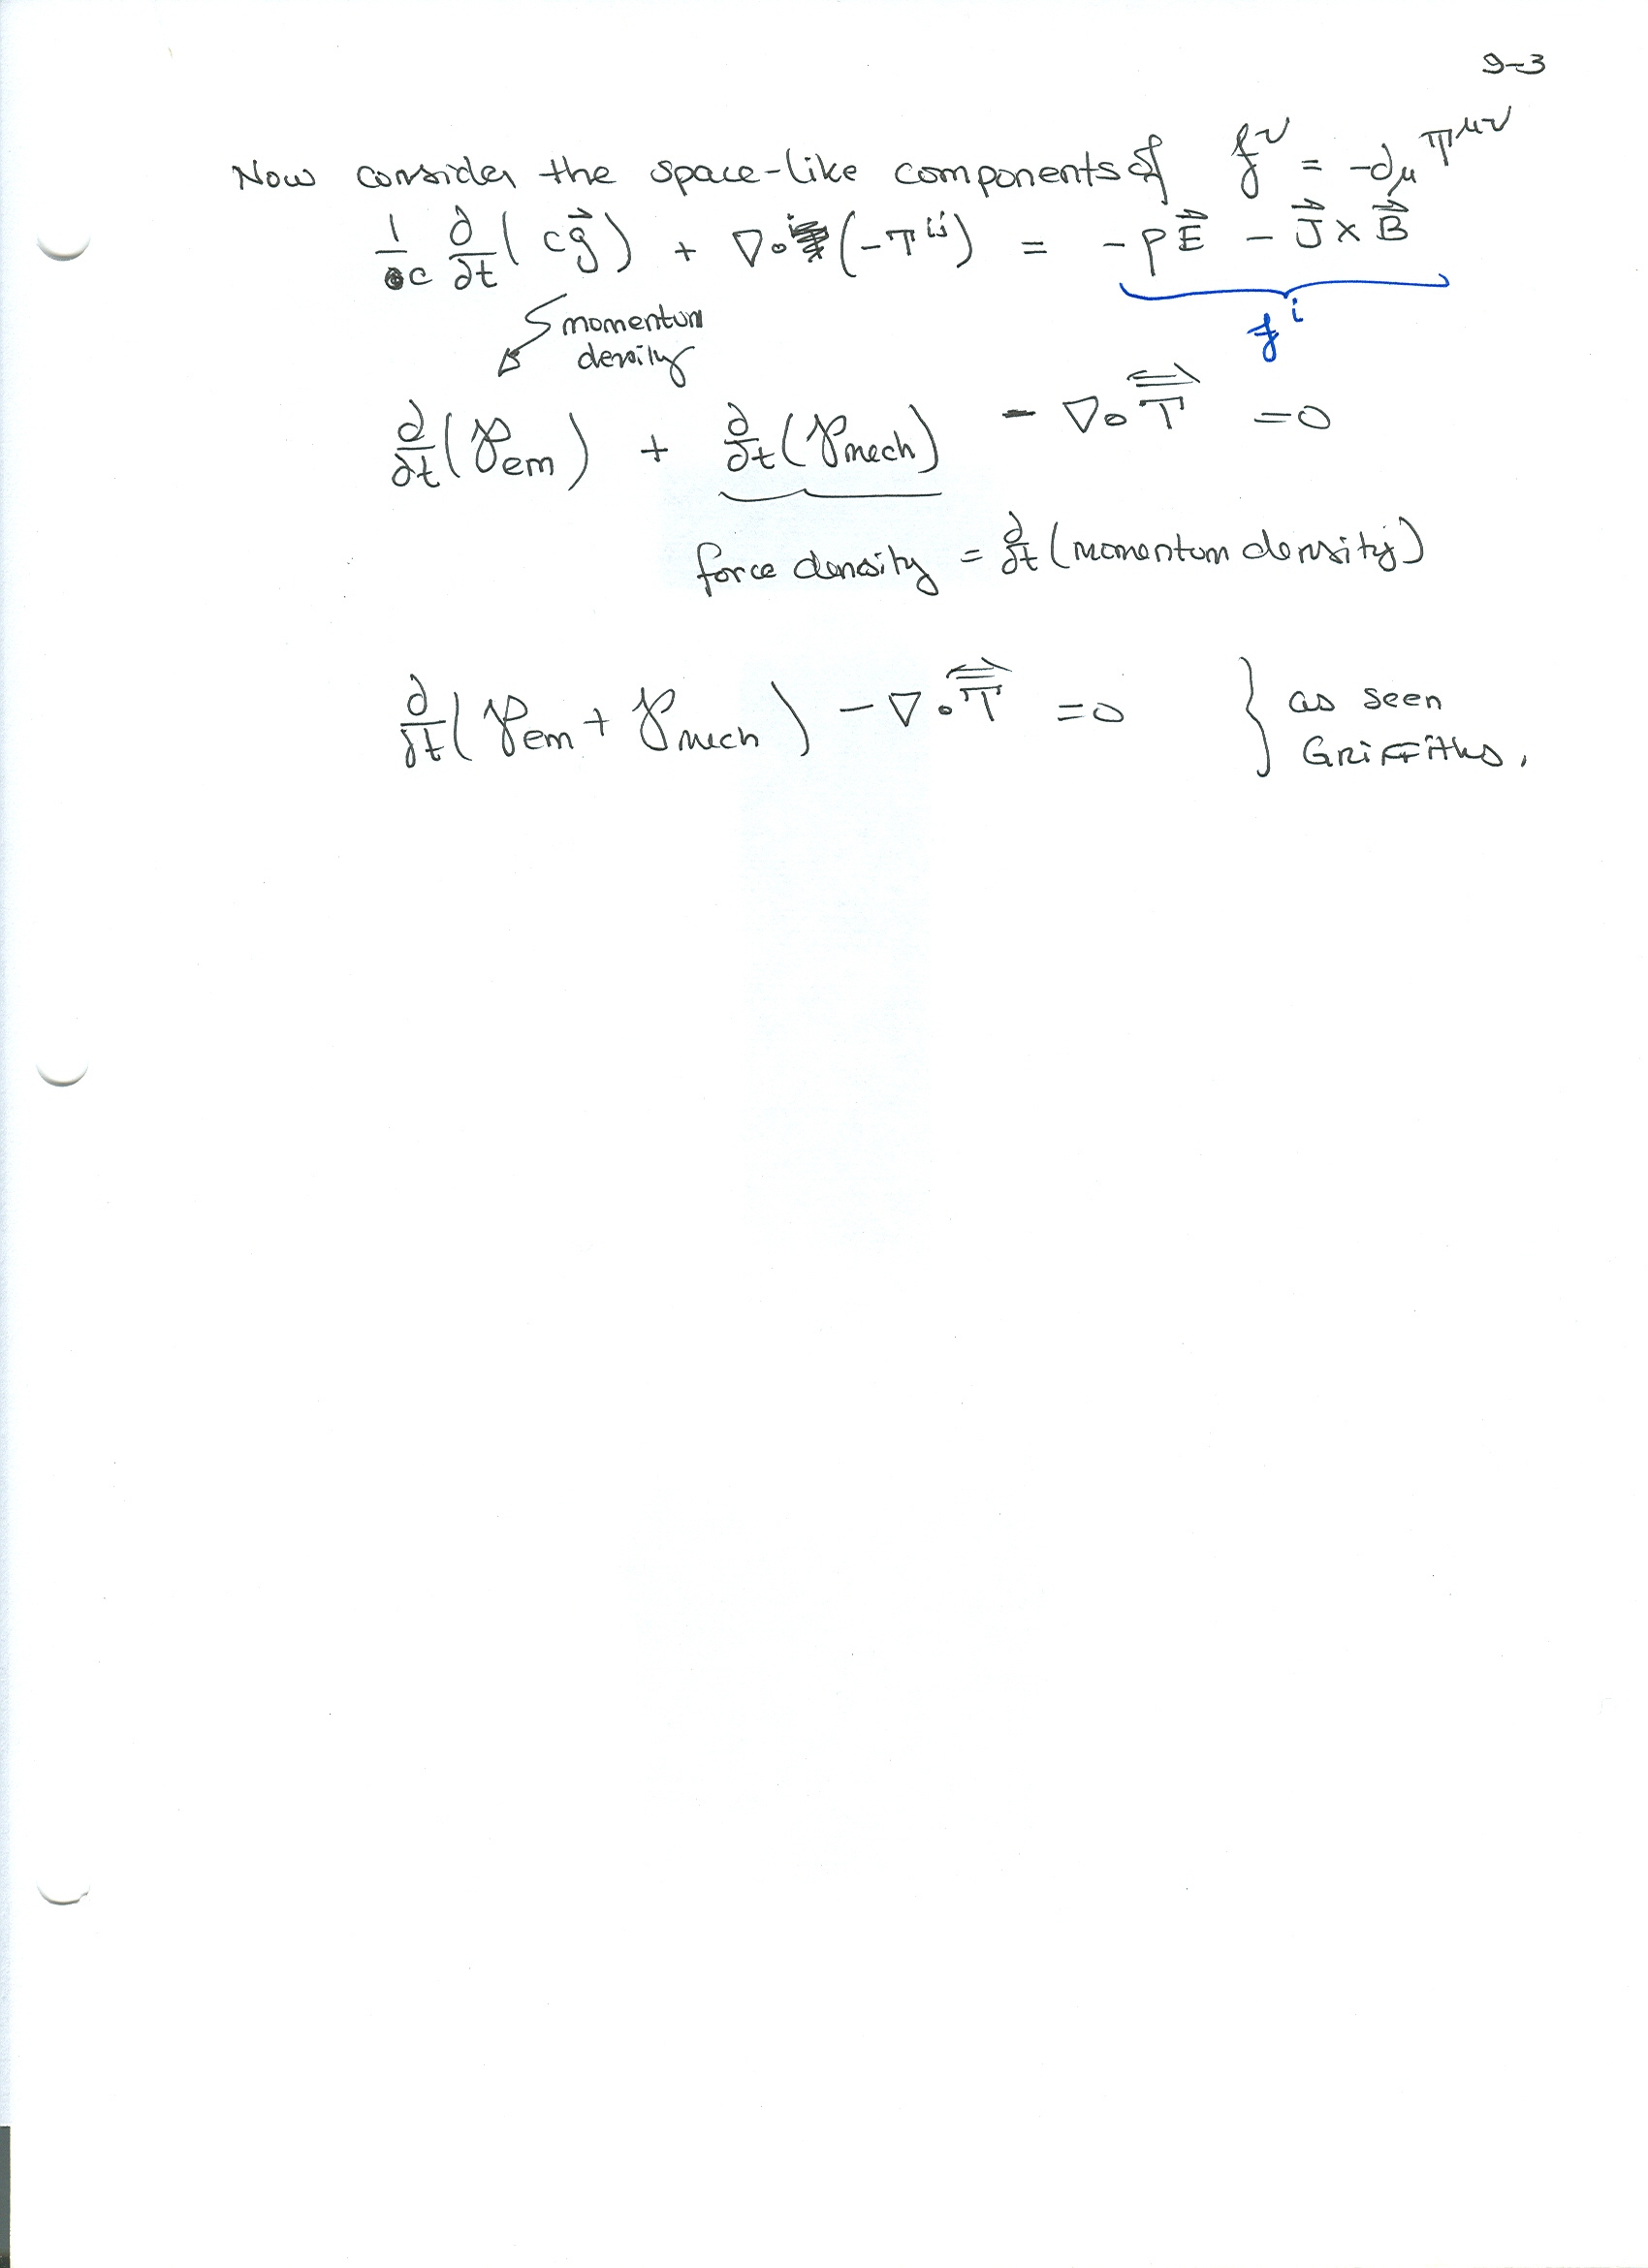 9-3
Now consider the space-like components of f^ν = -∂_μ T^μν
1/c ∂/∂t (c g⃗) + ∇∘ (-T^ij) = -ρE⃗ - J⃗ × B⃗
momentum
density
f^i
∂/∂t (℘em) + ∂/∂t (℘mech) - ∇∘T⃡ = 0
force density = ∂/∂t (momentum density)
∂/∂t (℘em + ℘mech) - ∇∘T⃡ = 0 } as seen
Griffiths.